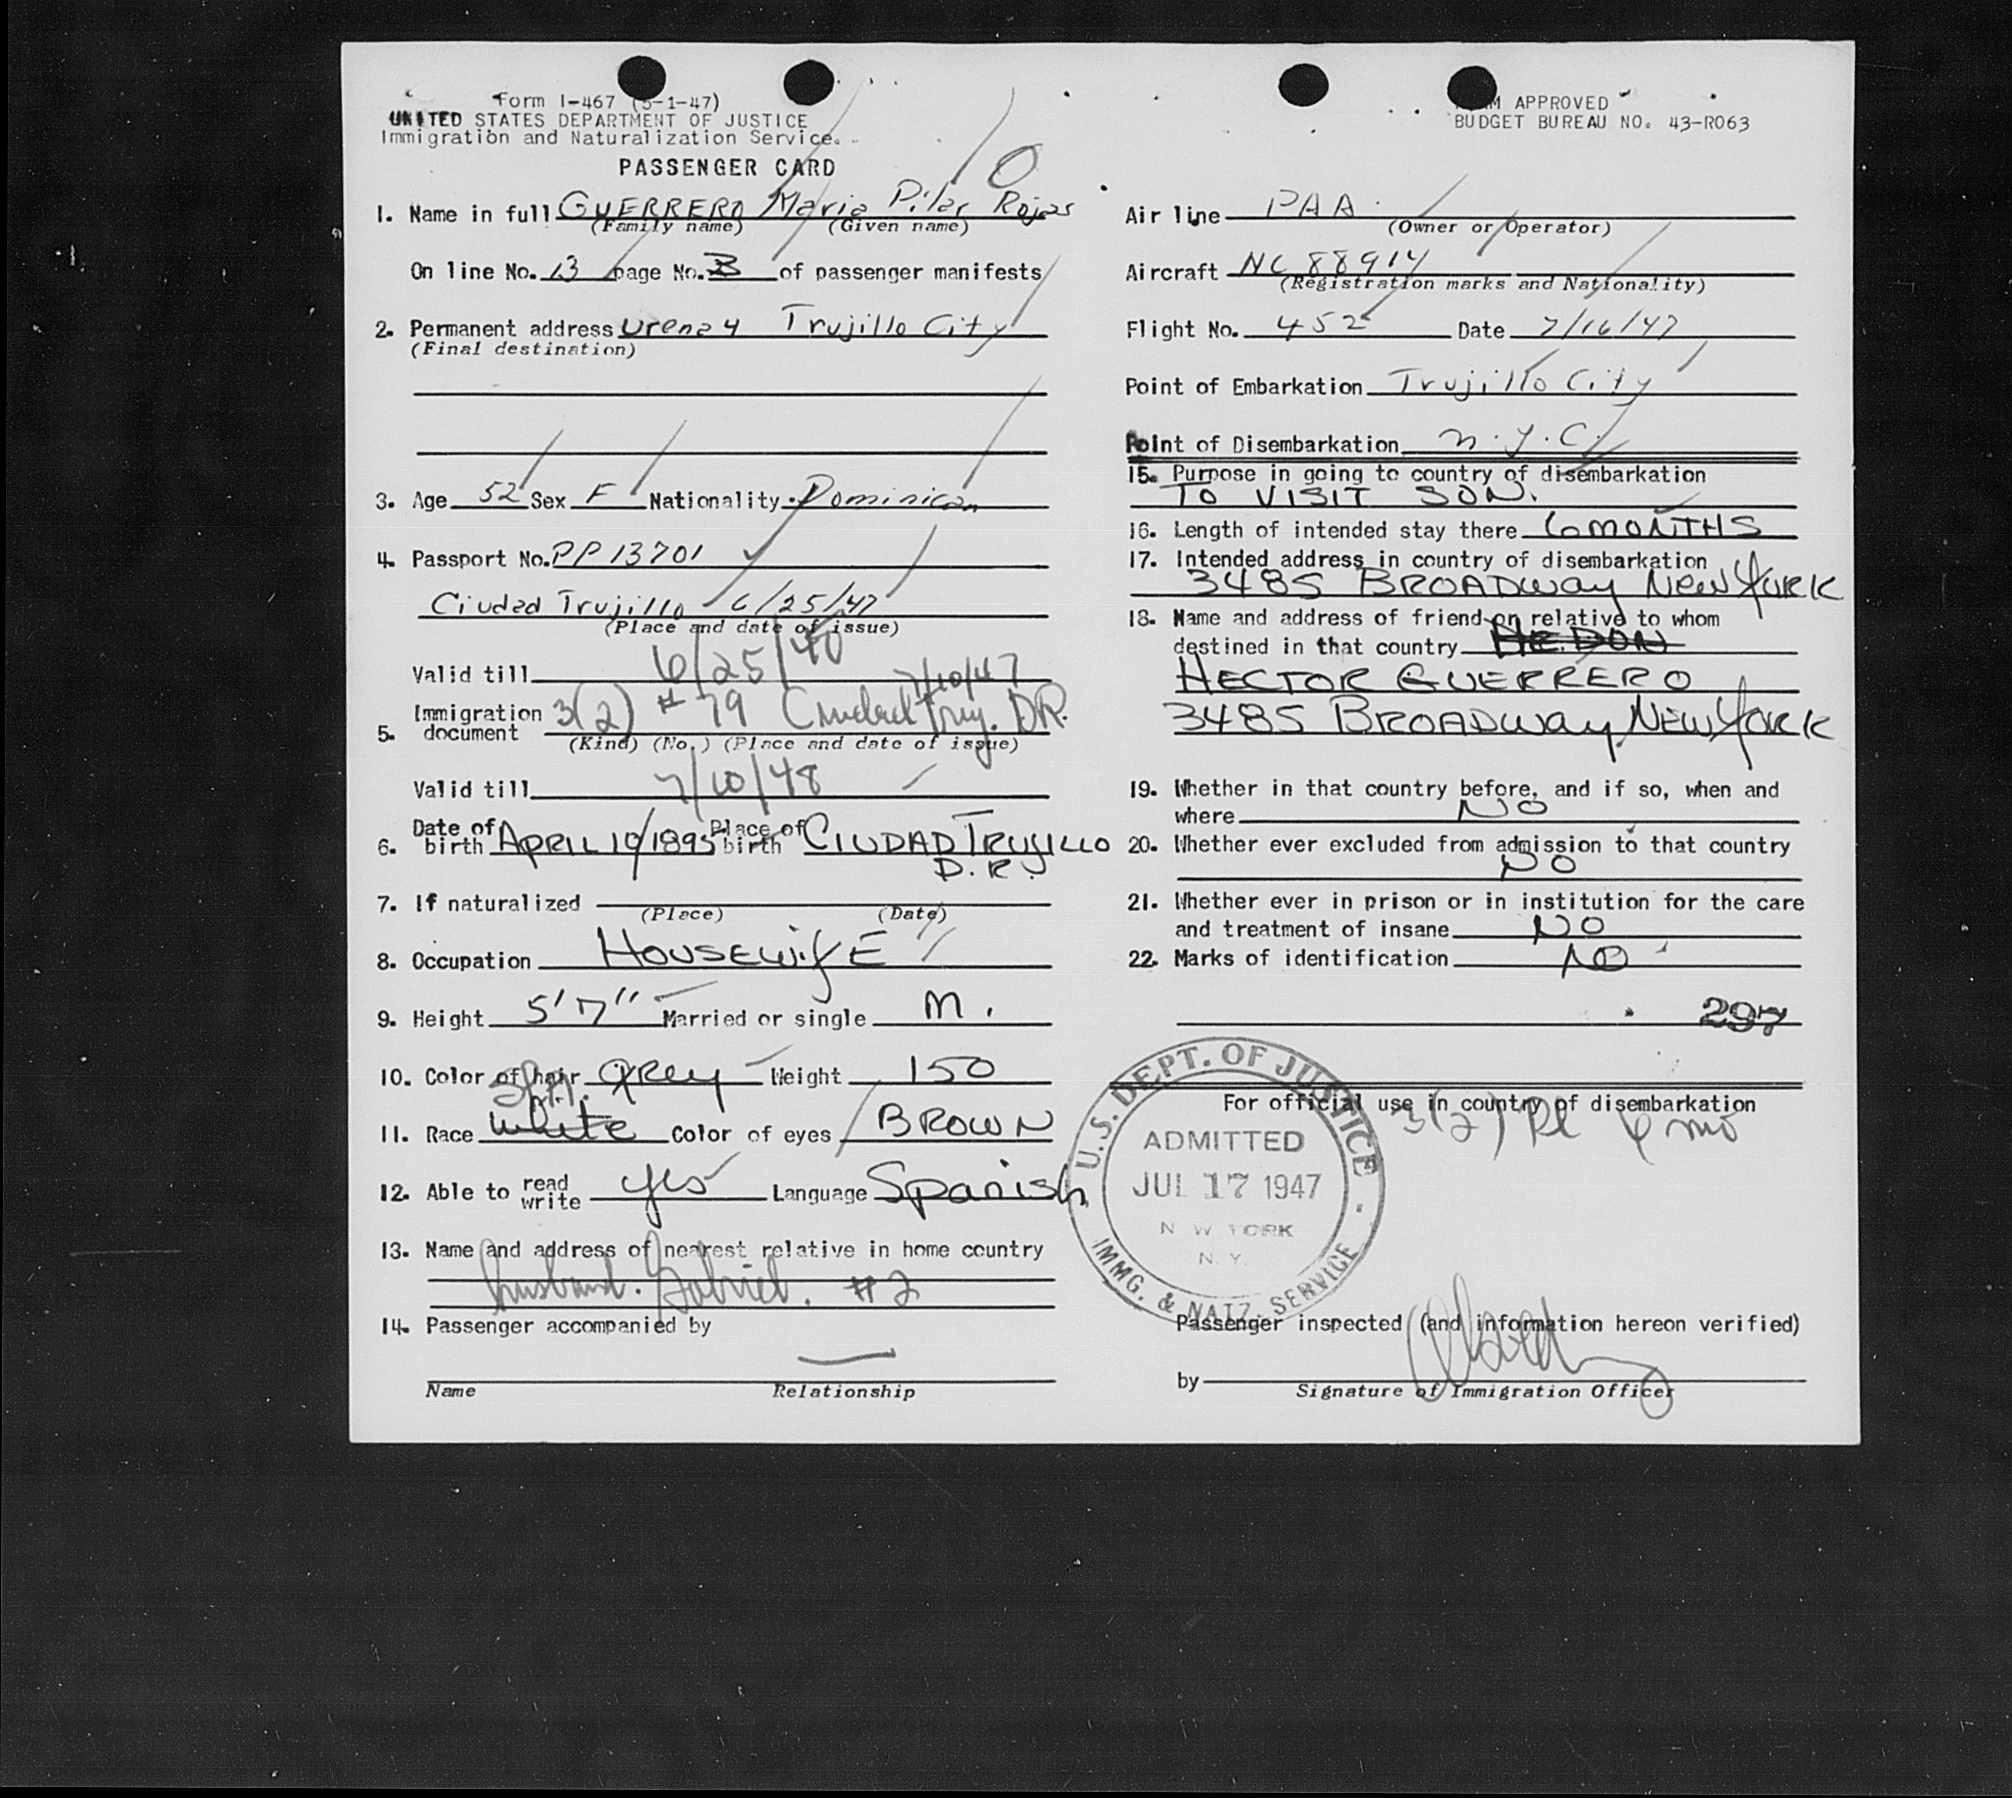 Form I-467 (5-1-47)
UNITED STATES DEPARTMENT OF JUSTICE
Immigration and Naturalization Service.
PASSENGER CARD
1. Name in full GUERRERO Maria Pilar Rojas
(Family name) (Given name)
On line No. 13 page No. 3 of passenger manifests
2. Permanent address Urena 4 Trujillo City
(Final destination)
3. Age 52 Sex F Nationality Dominican
4. Passport No. PP 13701
Ciudad Trujillo 6/25/47
(Place and date of issue)
Valid till 6/25/48
7/10/47
5. Immigration document 3(2) # 79 Ciudad Truj. D.R.
(Kind) (No.) (Place and date of issue)
Valid till 7/10/48
6. Date of birth APRIL 10/1895 Place of birth CIUDAD TRUJILLO
D.R.
7. If naturalized
(Place) (Date)
8. Occupation HOUSEWIFE
9. Height 5'7" Married or single M.
10. Color of hair Grey Weight 150
Span.
11. Race White Color of eyes BROWN
12. Able to read write yes Language Spanish
13. Name and address of nearest relative in home country
husband. Gabriel. #2
14. Passenger accompanied by
Name Relationship
FORM APPROVED
BUDGET BUREAU NO. 43-R063
Air line PAA
(Owner or Operator)
Aircraft NC 88914
(Registration marks and Nationality)
Flight No. 452 Date 7/16/47
Point of Embarkation Trujillo City
Point of Disembarkation N.Y.C.
15. Purpose in going to country of disembarkation
TO VISIT SON.
16. Length of intended stay there 6 MONTHS
17. Intended address in country of disembarkation
3485 BROADWAY NEW YORK
18. Name and address of friend or relative to whom
destined in that country
HECTOR GUERRERO
3485 BROADWAY NEW YORK
19. Whether in that country before, and if so, when and
where NO
20. Whether ever excluded from admission to that country
NO
21. Whether ever in prison or in institution for the care
and treatment of insane NO
22. Marks of identification NO
297
For official use in country of disembarkation
3(2) Pl 6 mo
U.S. DEPT. OF JUSTICE
ADMITTED
JUL 17 1947
NEW YORK
N.Y.
IMMG. & NATZ. SERVICE
Passenger inspected (and information hereon verified)
by
Signature of Immigration Officer